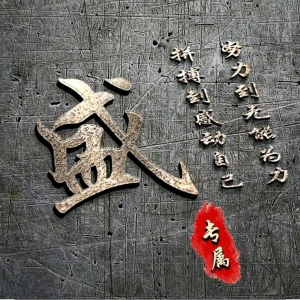 盛
努力到无能为力
拼搏到感动自己
专属